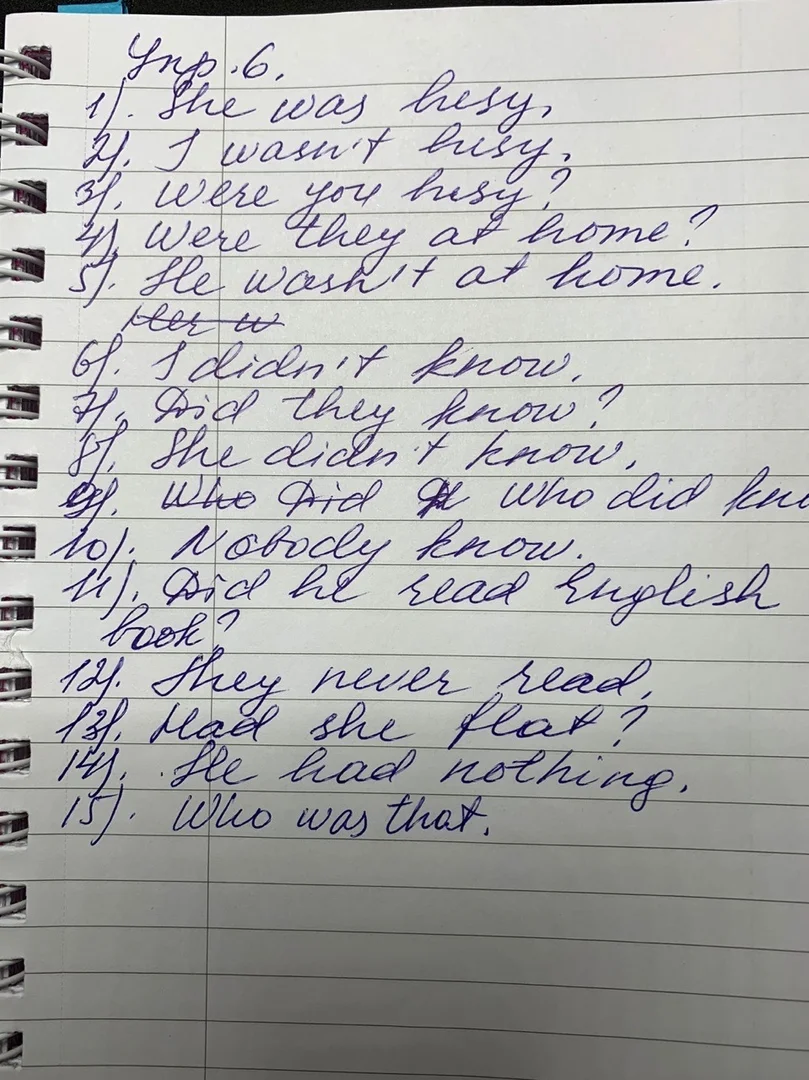 Упр. 6.
1). She was busy.
2). I wasn't busy.
3). Were you busy?
4). Were they at home?
5). He wasn't at home.
Her w
6). I didn't know.
7). Did they know?
8). She didn't know.
9). Who Did Who did kno
10). Nobody know.
11). Did he read English
book?
12). They never read.
13). Had she flat?
14). He had nothing.
15). Who was that.